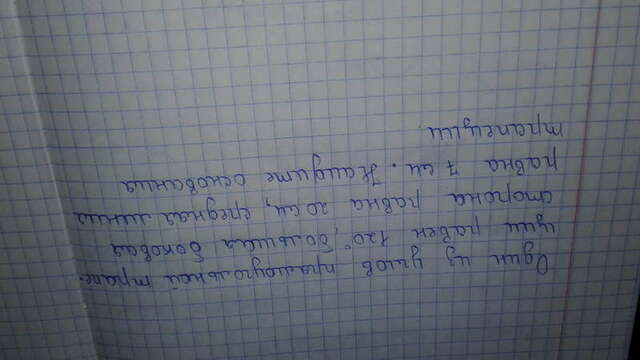 Один из углов прямоугольной трапе-
ции равен 120°, большая боковая
сторона равна 20 см, средняя линия
равна 7 см. Найдите основания
трапеции.